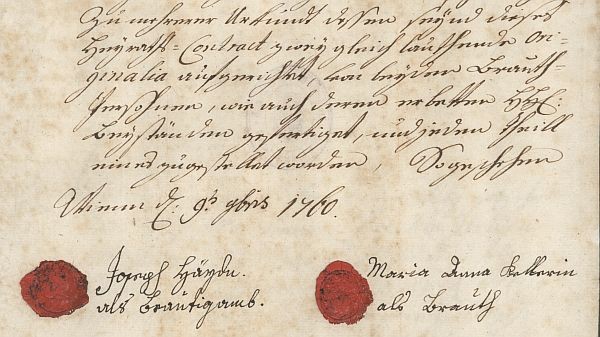 Zu mehrerer Urkundt dessen seynd dieses
Heyraths-Contract zwey gleich lauthende Ori-
ginalia aufgerichtet, von beyden Brauth-
Persohnen, wie auch deren erbettenen HH:
Beyständen gefertiget, und jeden Theill
eines zugestellet worden, So geschehen
Wienn d: 9t 9bris 1760.
Joseph Haydn.
als Bräutigamb.
Maria Anna Kellerin
als Brauth